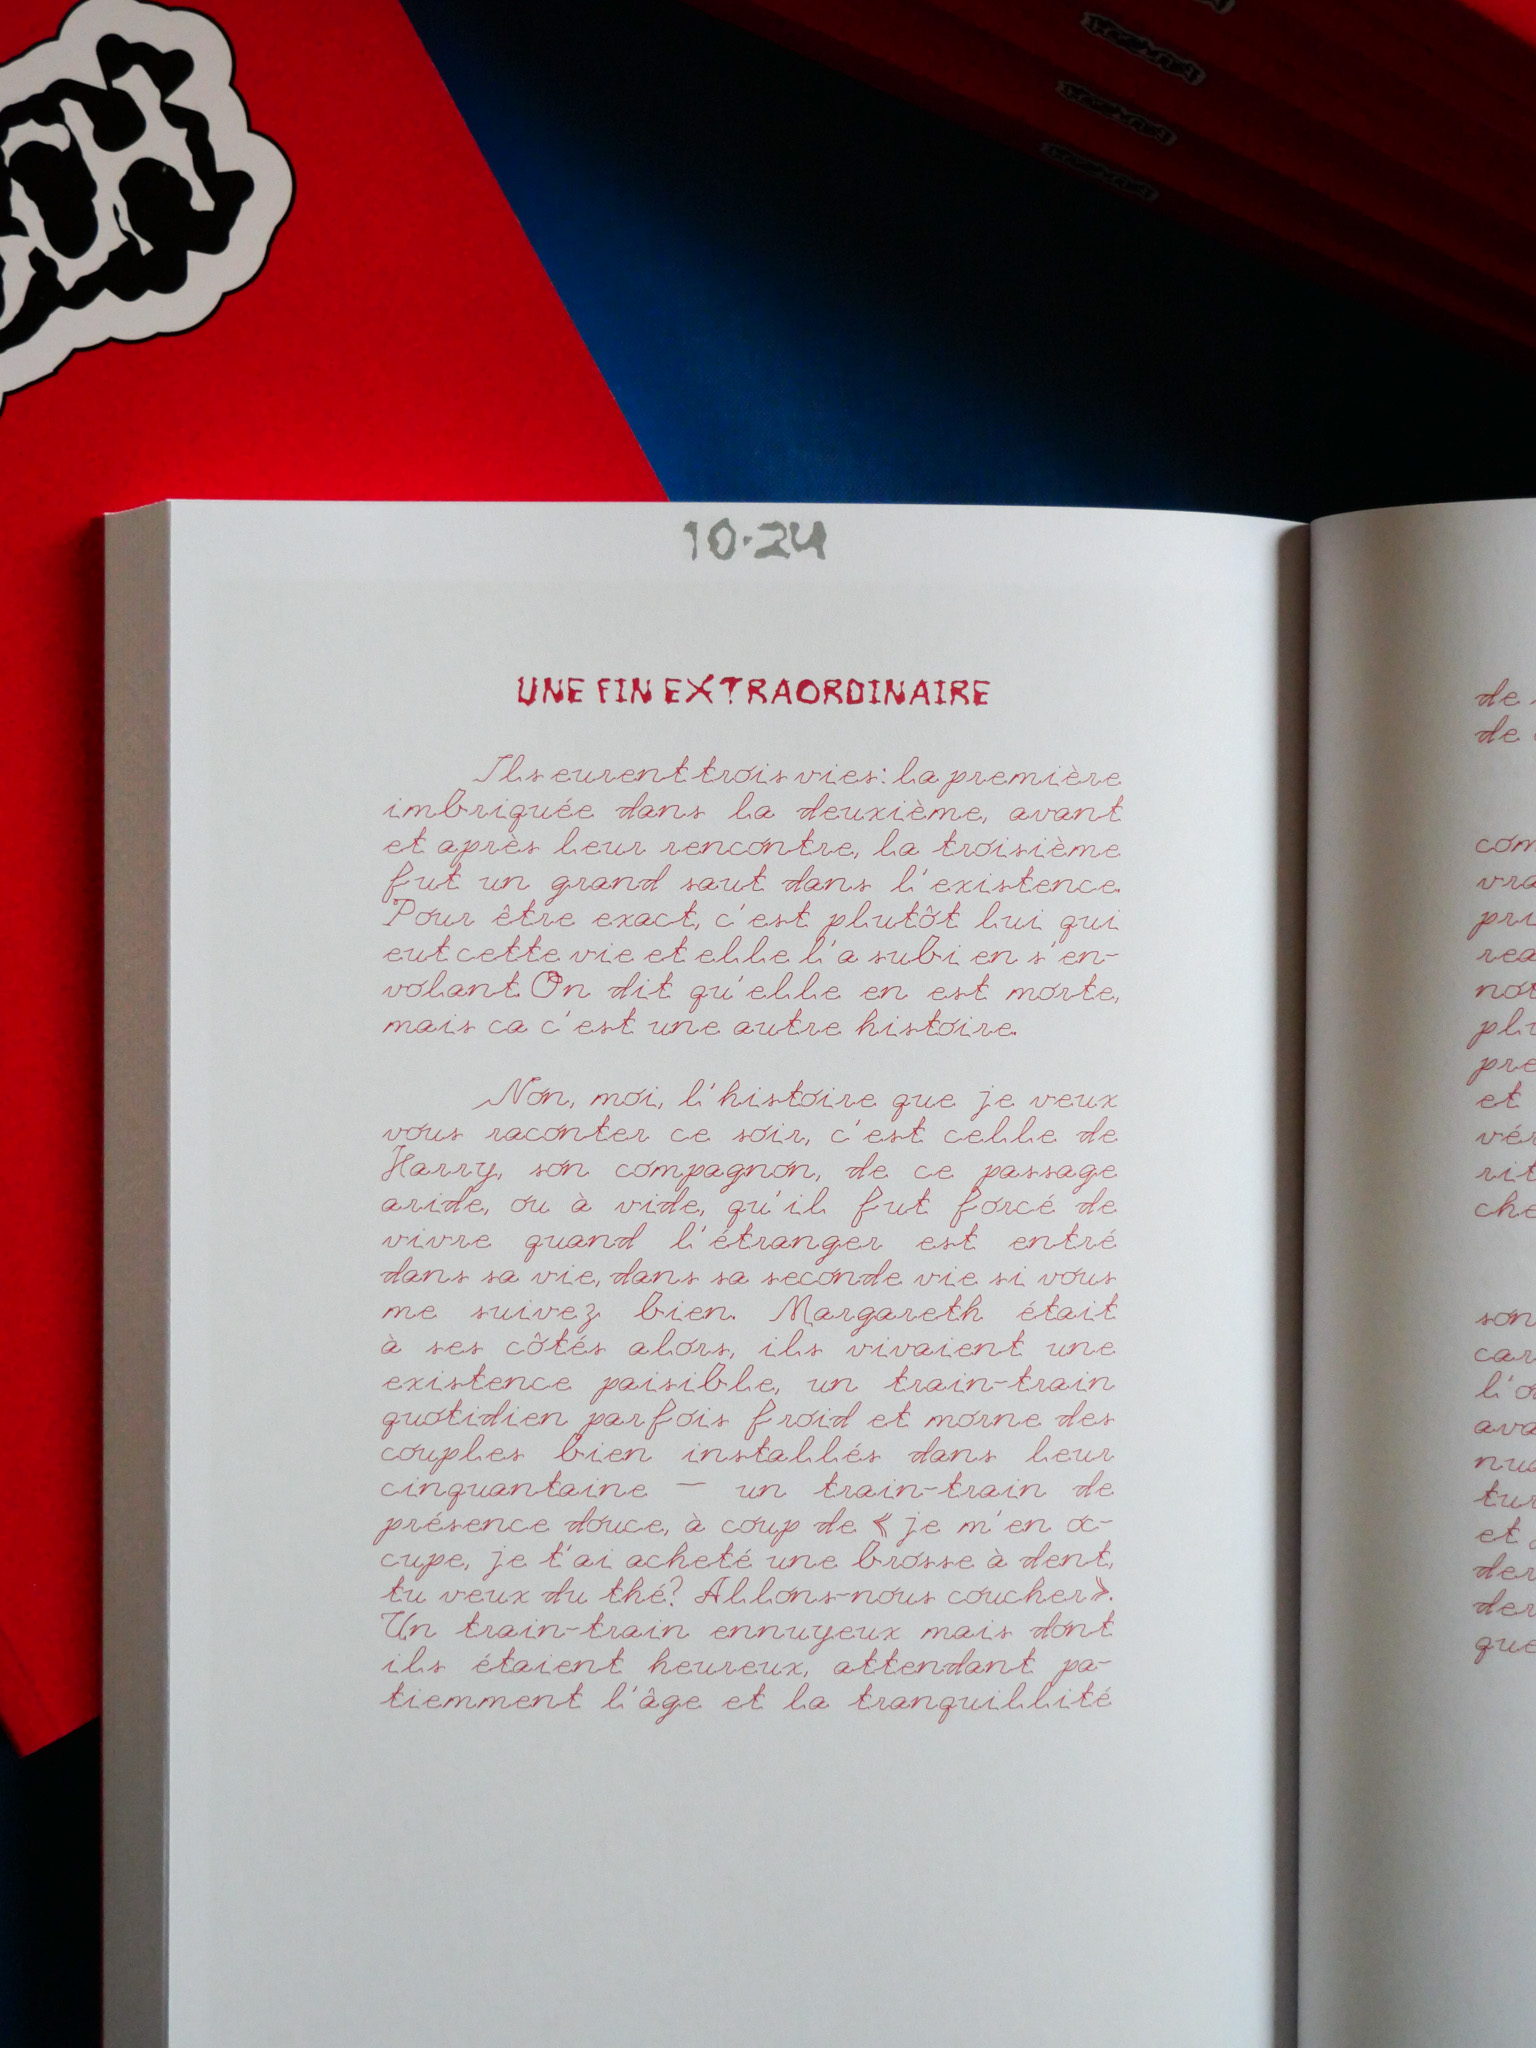 10·24
UNE FIN EXTRAORDINAIRE
Ils eurent trois vies : la première
imbriquée dans la deuxième, avant
et après leur rencontre, la troisième
fut un grand saut dans l'existence.
Pour être exact, c'est plutôt lui qui
eut cette vie et elle l'a subi en s'en-
volant. On dit qu'elle en est morte,
mais ca c'est une autre histoire.
Non, moi, l'histoire que je veux
vous raconter ce soir, c'est celle de
Harry, son compagnon, de ce passage
aride, ou à vide, qu'il fut forcé de
vivre quand l'étranger est entré
dans sa vie, dans sa seconde vie si vous
me suivez bien. Margareth était
à ses côtés alors, ils vivaient une
existence paisible, un train-train
quotidien parfois froid et morne des
couples bien installés dans leur
cinquantaine — un train-train de
présence douce, à coup de « je m'en oc-
cupe, je t'ai acheté une brosse à dent,
tu veux du thé? Allons-nous coucher».
Un train-train ennuyeux mais dont
ils étaient heureux, attendant pa-
tiemment l'âge et la tranquillité
de
de
et
l'
et
que